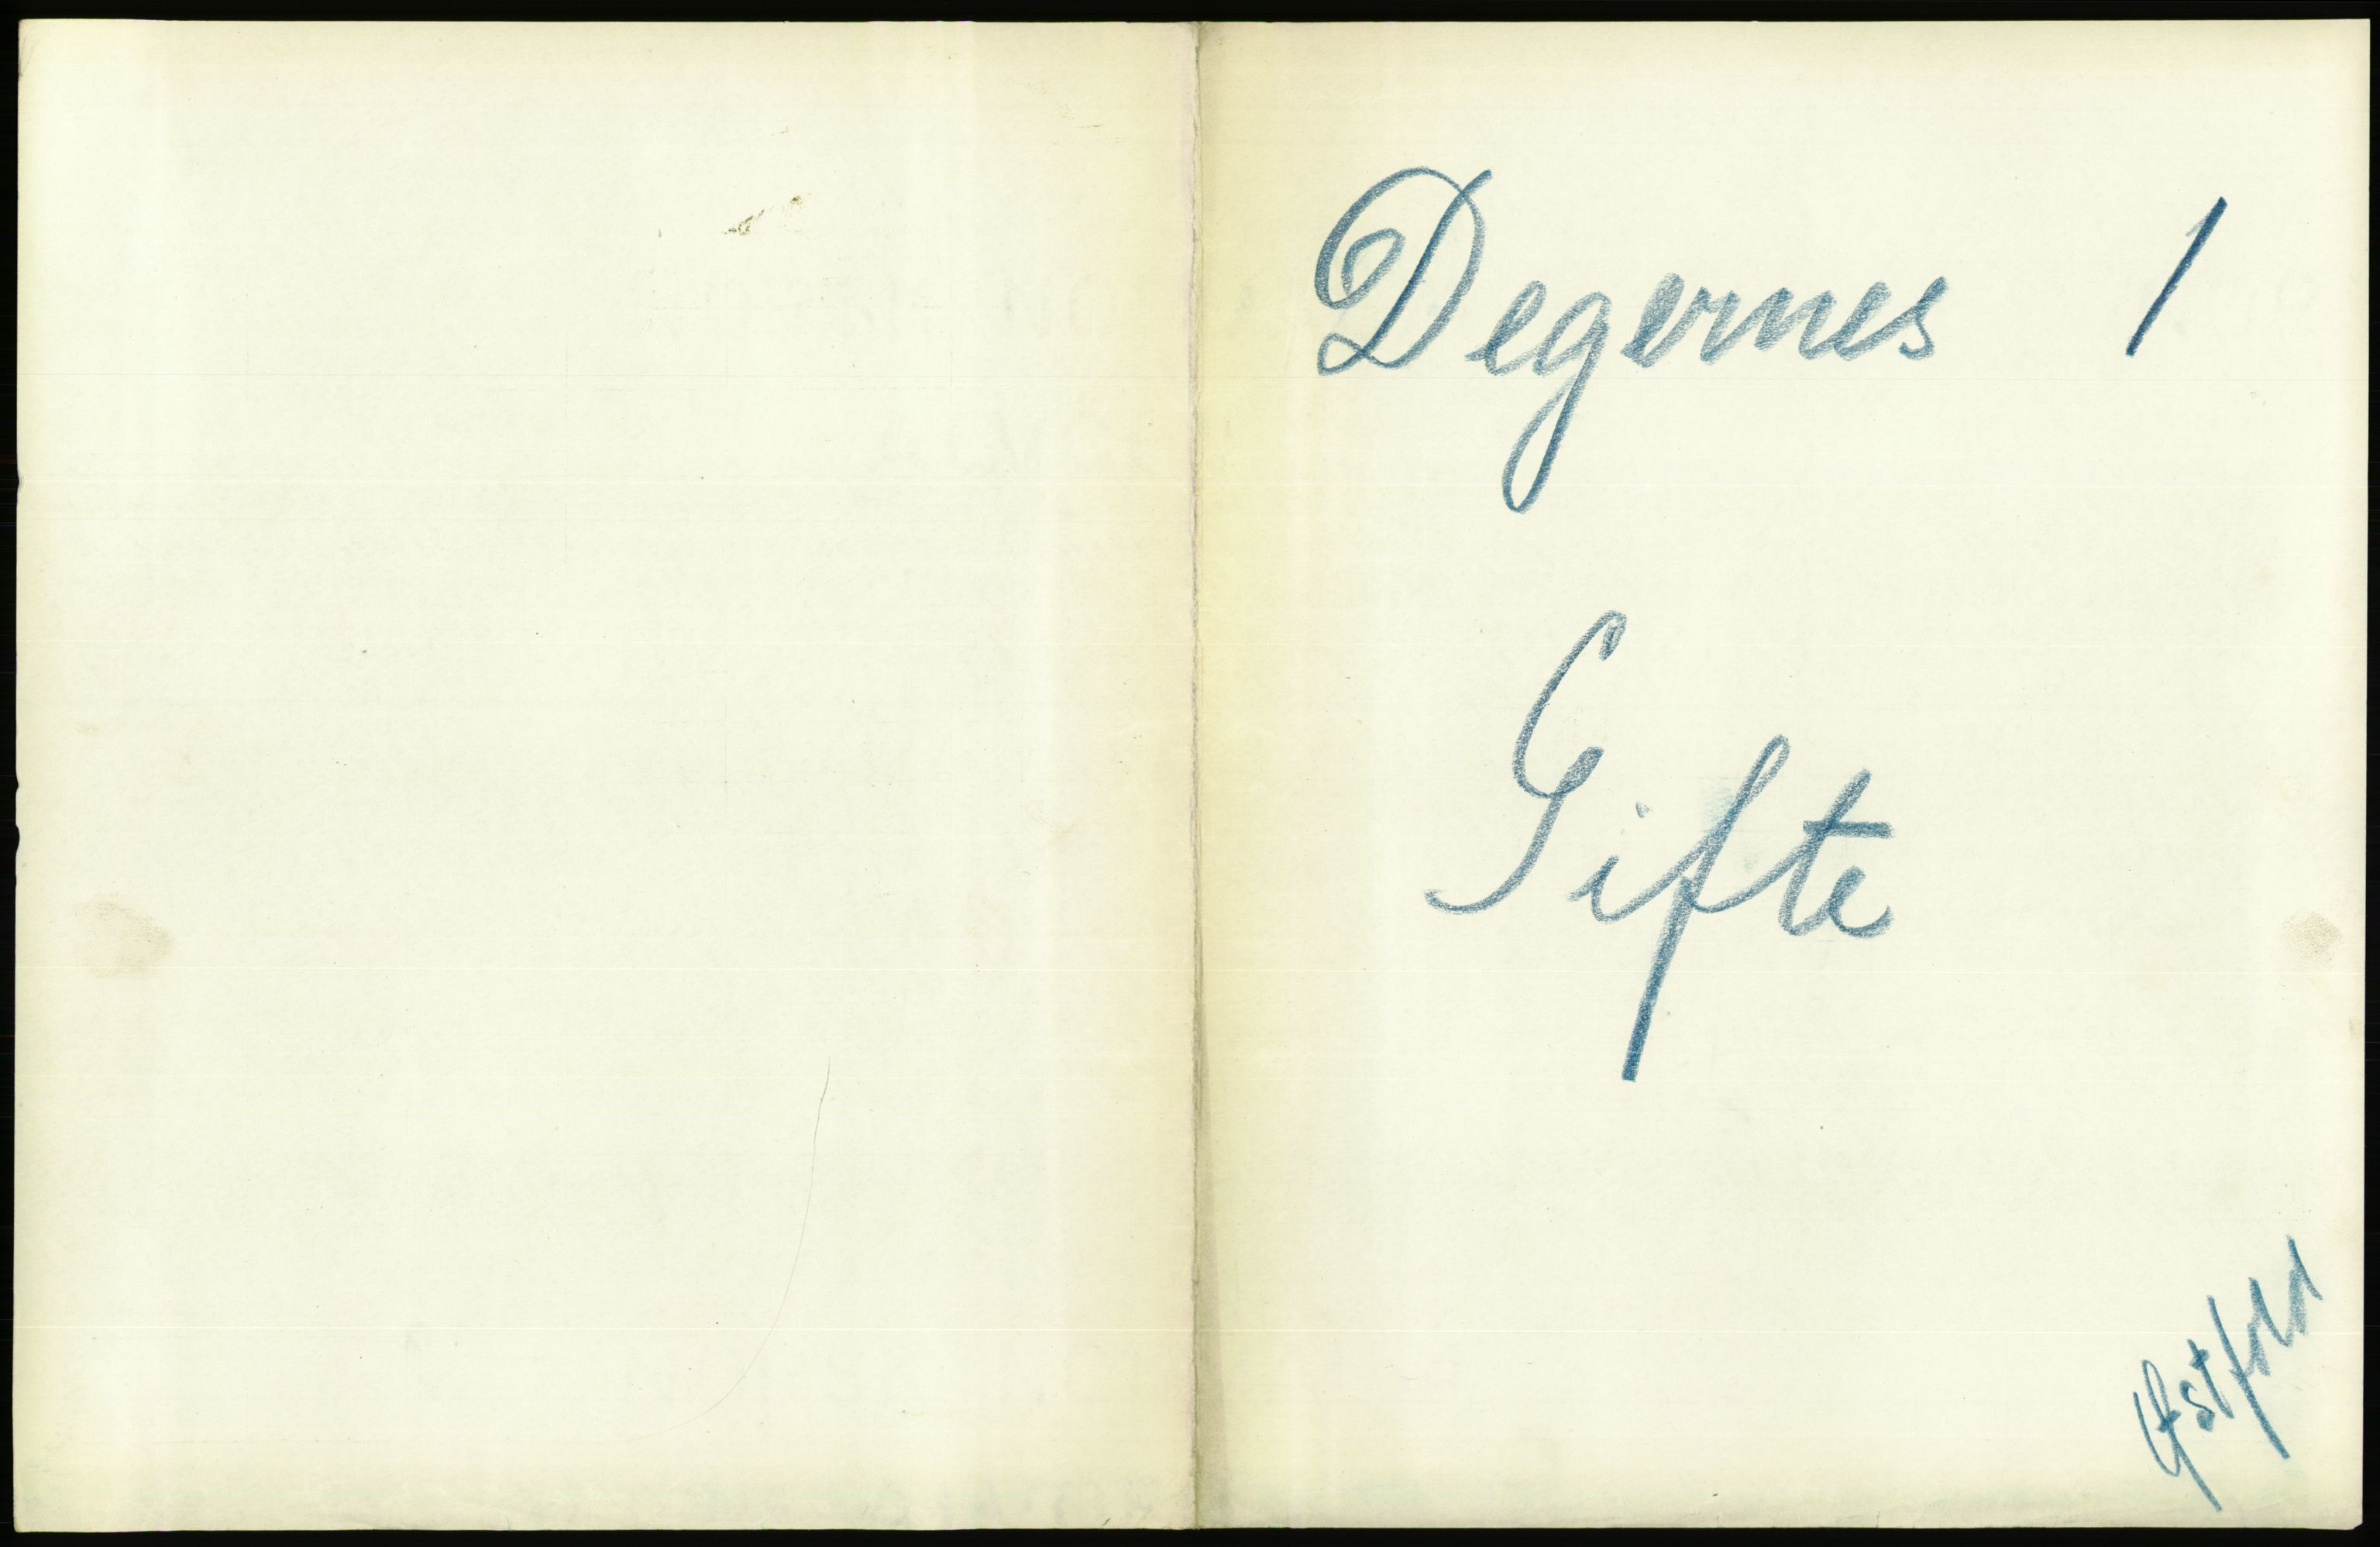 Degernes 1
Gifte
Østfold